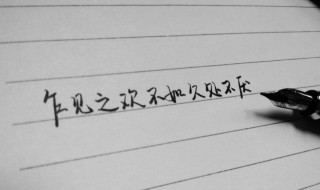 乍见之欢不如久处不厌